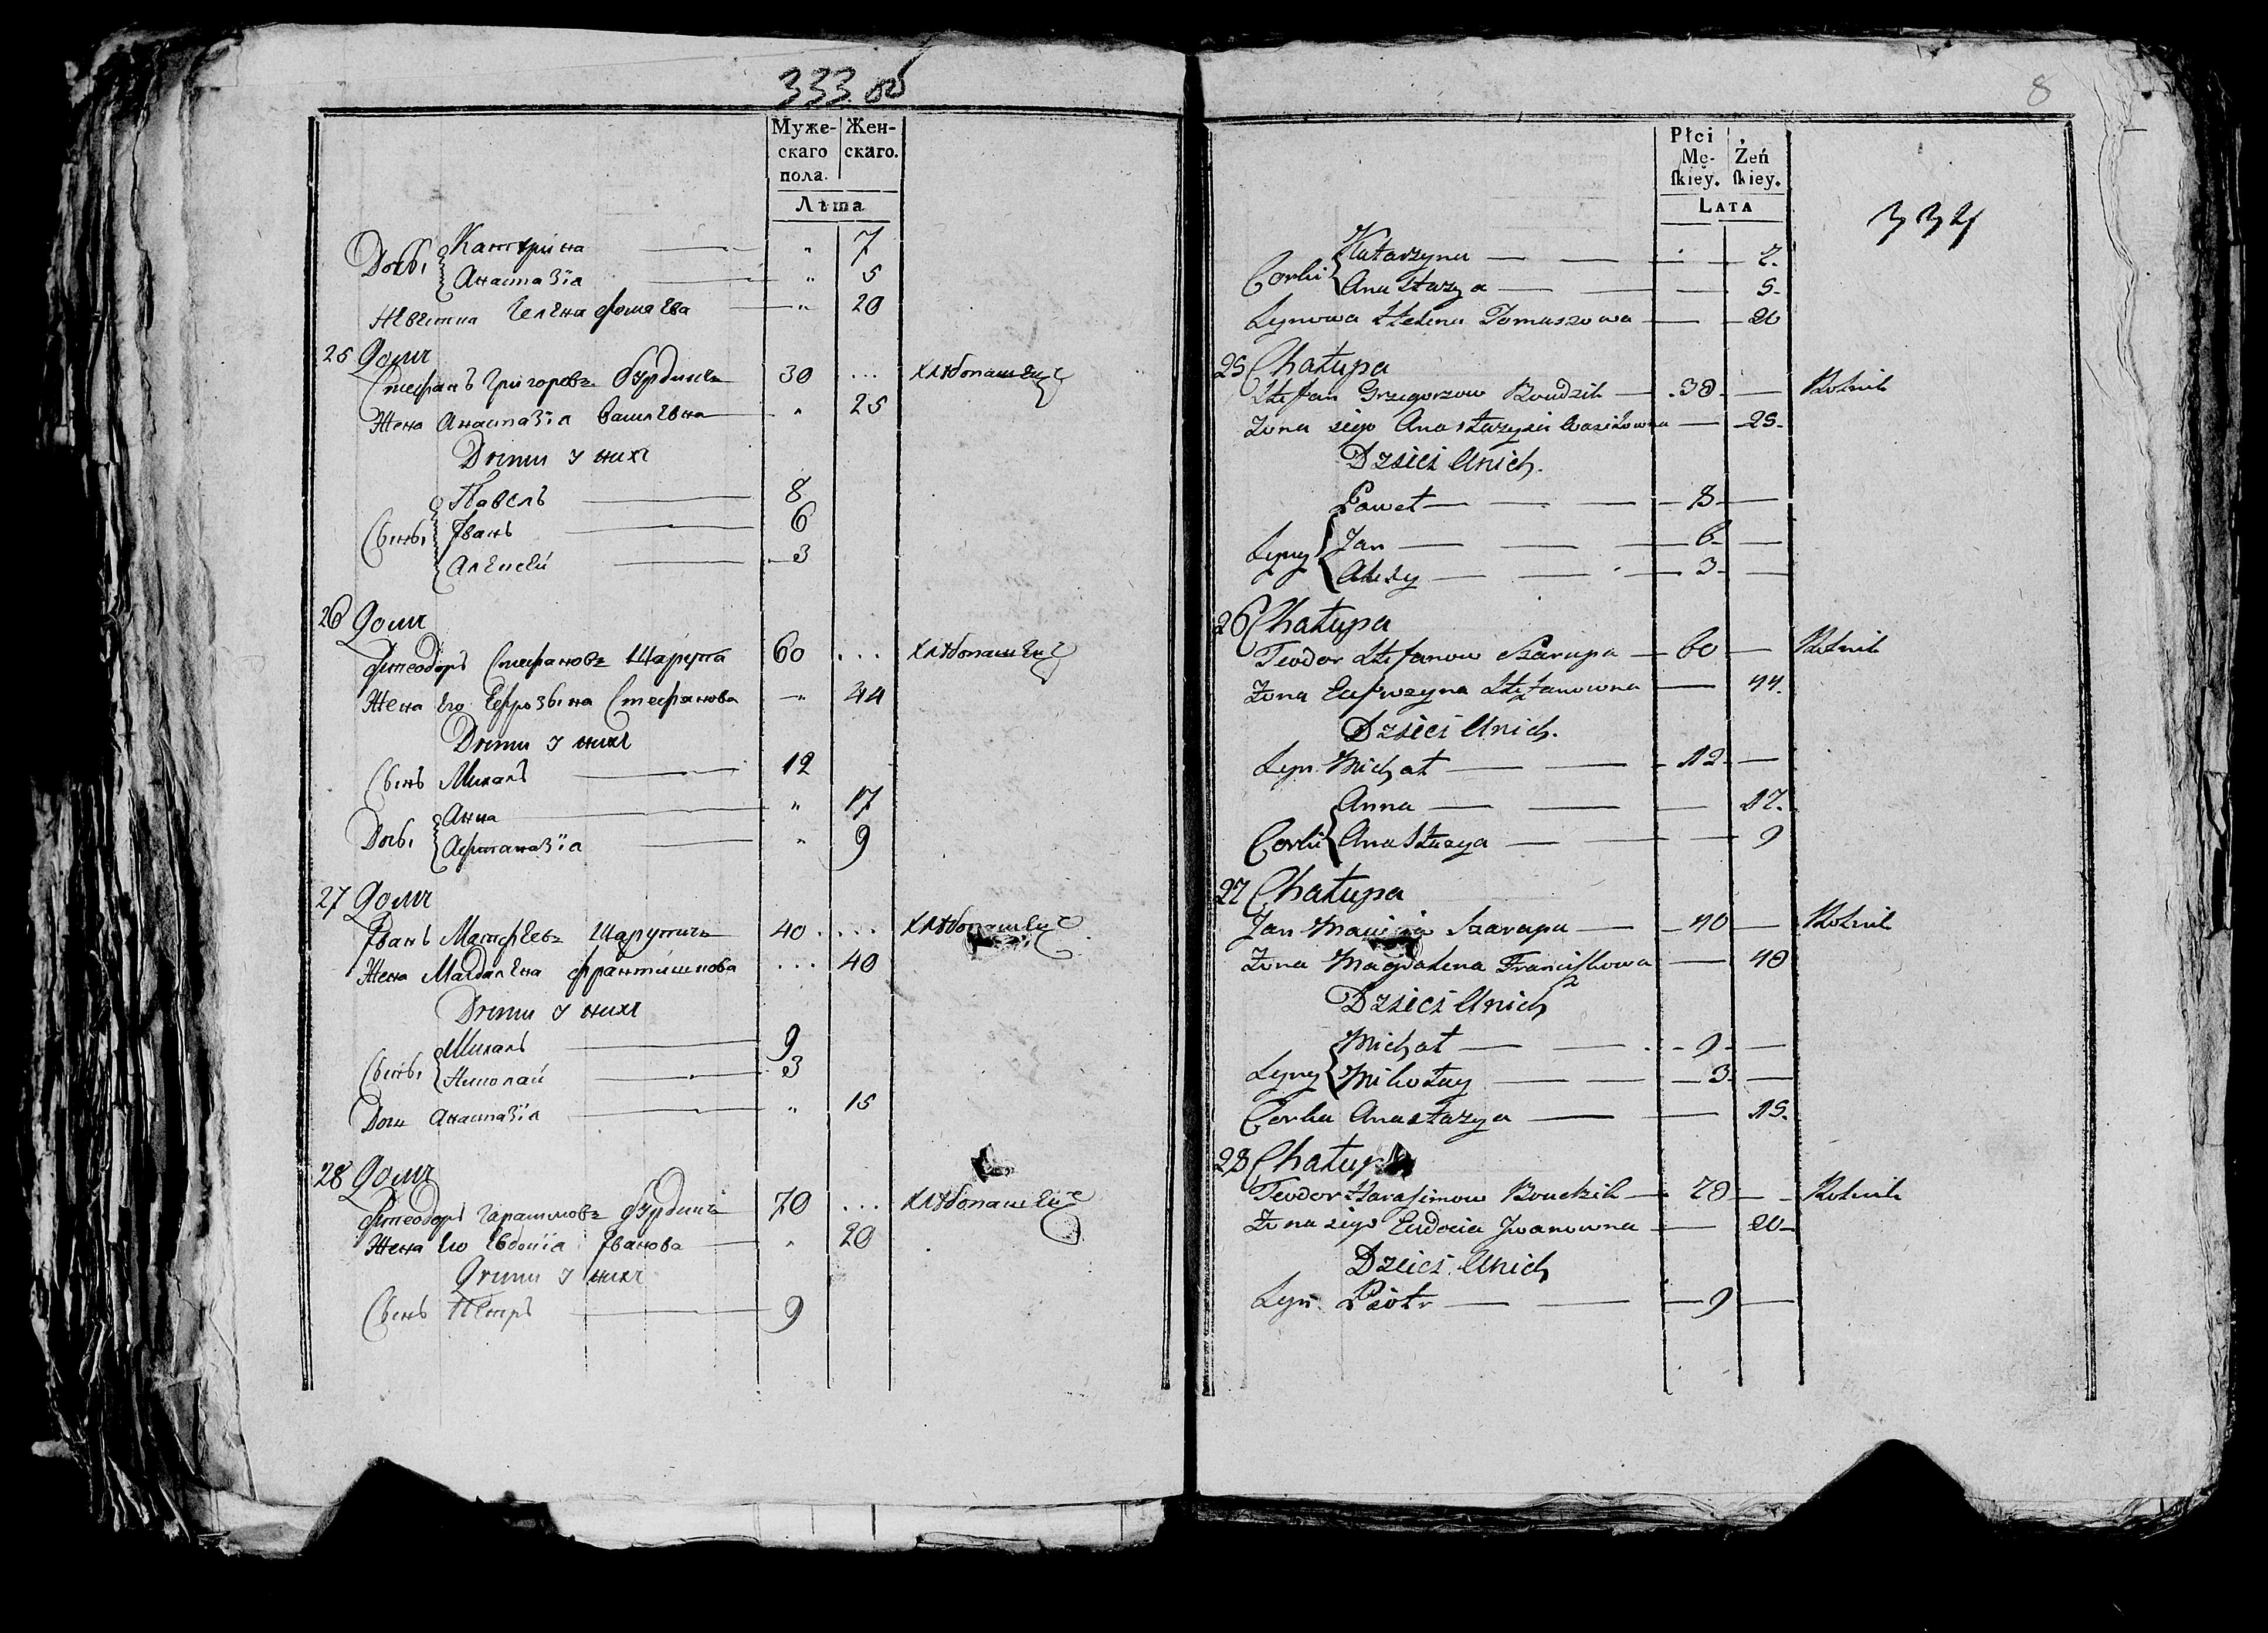 333 об
Муже- Жен-
скаго скаго.
пола.
Лѣта
Катерина " 7
Дочь,
Анастазїа " 5
Невестка Гелена Фомаева " 20
25 Домъ
Стефанъ Григоровъ 30 ... хлѣбопашецъ
Жена Анастазїа Васильевна " 25
Дѣти у нихъ
Павелъ 8
Сынъ, Иванъ 6
Алексей 3
26 Домъ
Фтеодоръ Стефановъ Шарупа 60 ... хлѣбопашецъ
Жена его Ефрозына Стефанова " 44
Дѣти у нихъ
Сынъ Михалъ 12
Анна " 17
Дочь,
Афтаназїа " 9
27 Домъ
Иванъ Матфеевъ 40 ... хлѣбопашецъ
Жена Магдалена Франтишкова ... 40
Дѣти у нихъ
Михалъ 9
Сынъ,
Николай 3
Дочь Анастазїа " 15
28 Домъ
Фтеодоръ Гарасимовъ 70 ... хлѣбопашецъ
Жена его Евдокїа Иванова " 20
Дѣти у нихъ
Сынъ Петръ 9
8
Płci
Mę- Żeń
ſkiey. ſkiey.
LATA
334
Katarzyna 7.
Corki
Anastazya 5.
Synowa Helena Tomaszowa 20
25 Chałupa
Stefan Grzegorzow Bourdzik 30 Rolnik
Zona iego Anastazyia Wasilowna 25.
Dzieci Unich.
Paweł 8
Syny Jan 6
Alexy 3
26 Chałupa
Teodor Stefanow Szarupa 60 Rolnik
Zona Eufrozyna Stefanowna 44.
Dzieci Unich.
Syn Michał 12
Anna 17.
Corki Anastazya 9
27 Chałupa
Jan Szarupa 40 Rolnik
Zona Magdalena Franciszkowa 40
Dzieci Unich
Michał 9
Syny Mikołay 3
Corka Anastazya 15.
28 Chałupa
Teodor Harasimow 70 Rolnik
Zona iego Eudocia Jwanowna 20
Dzieci Unich
Syn Piotr 9